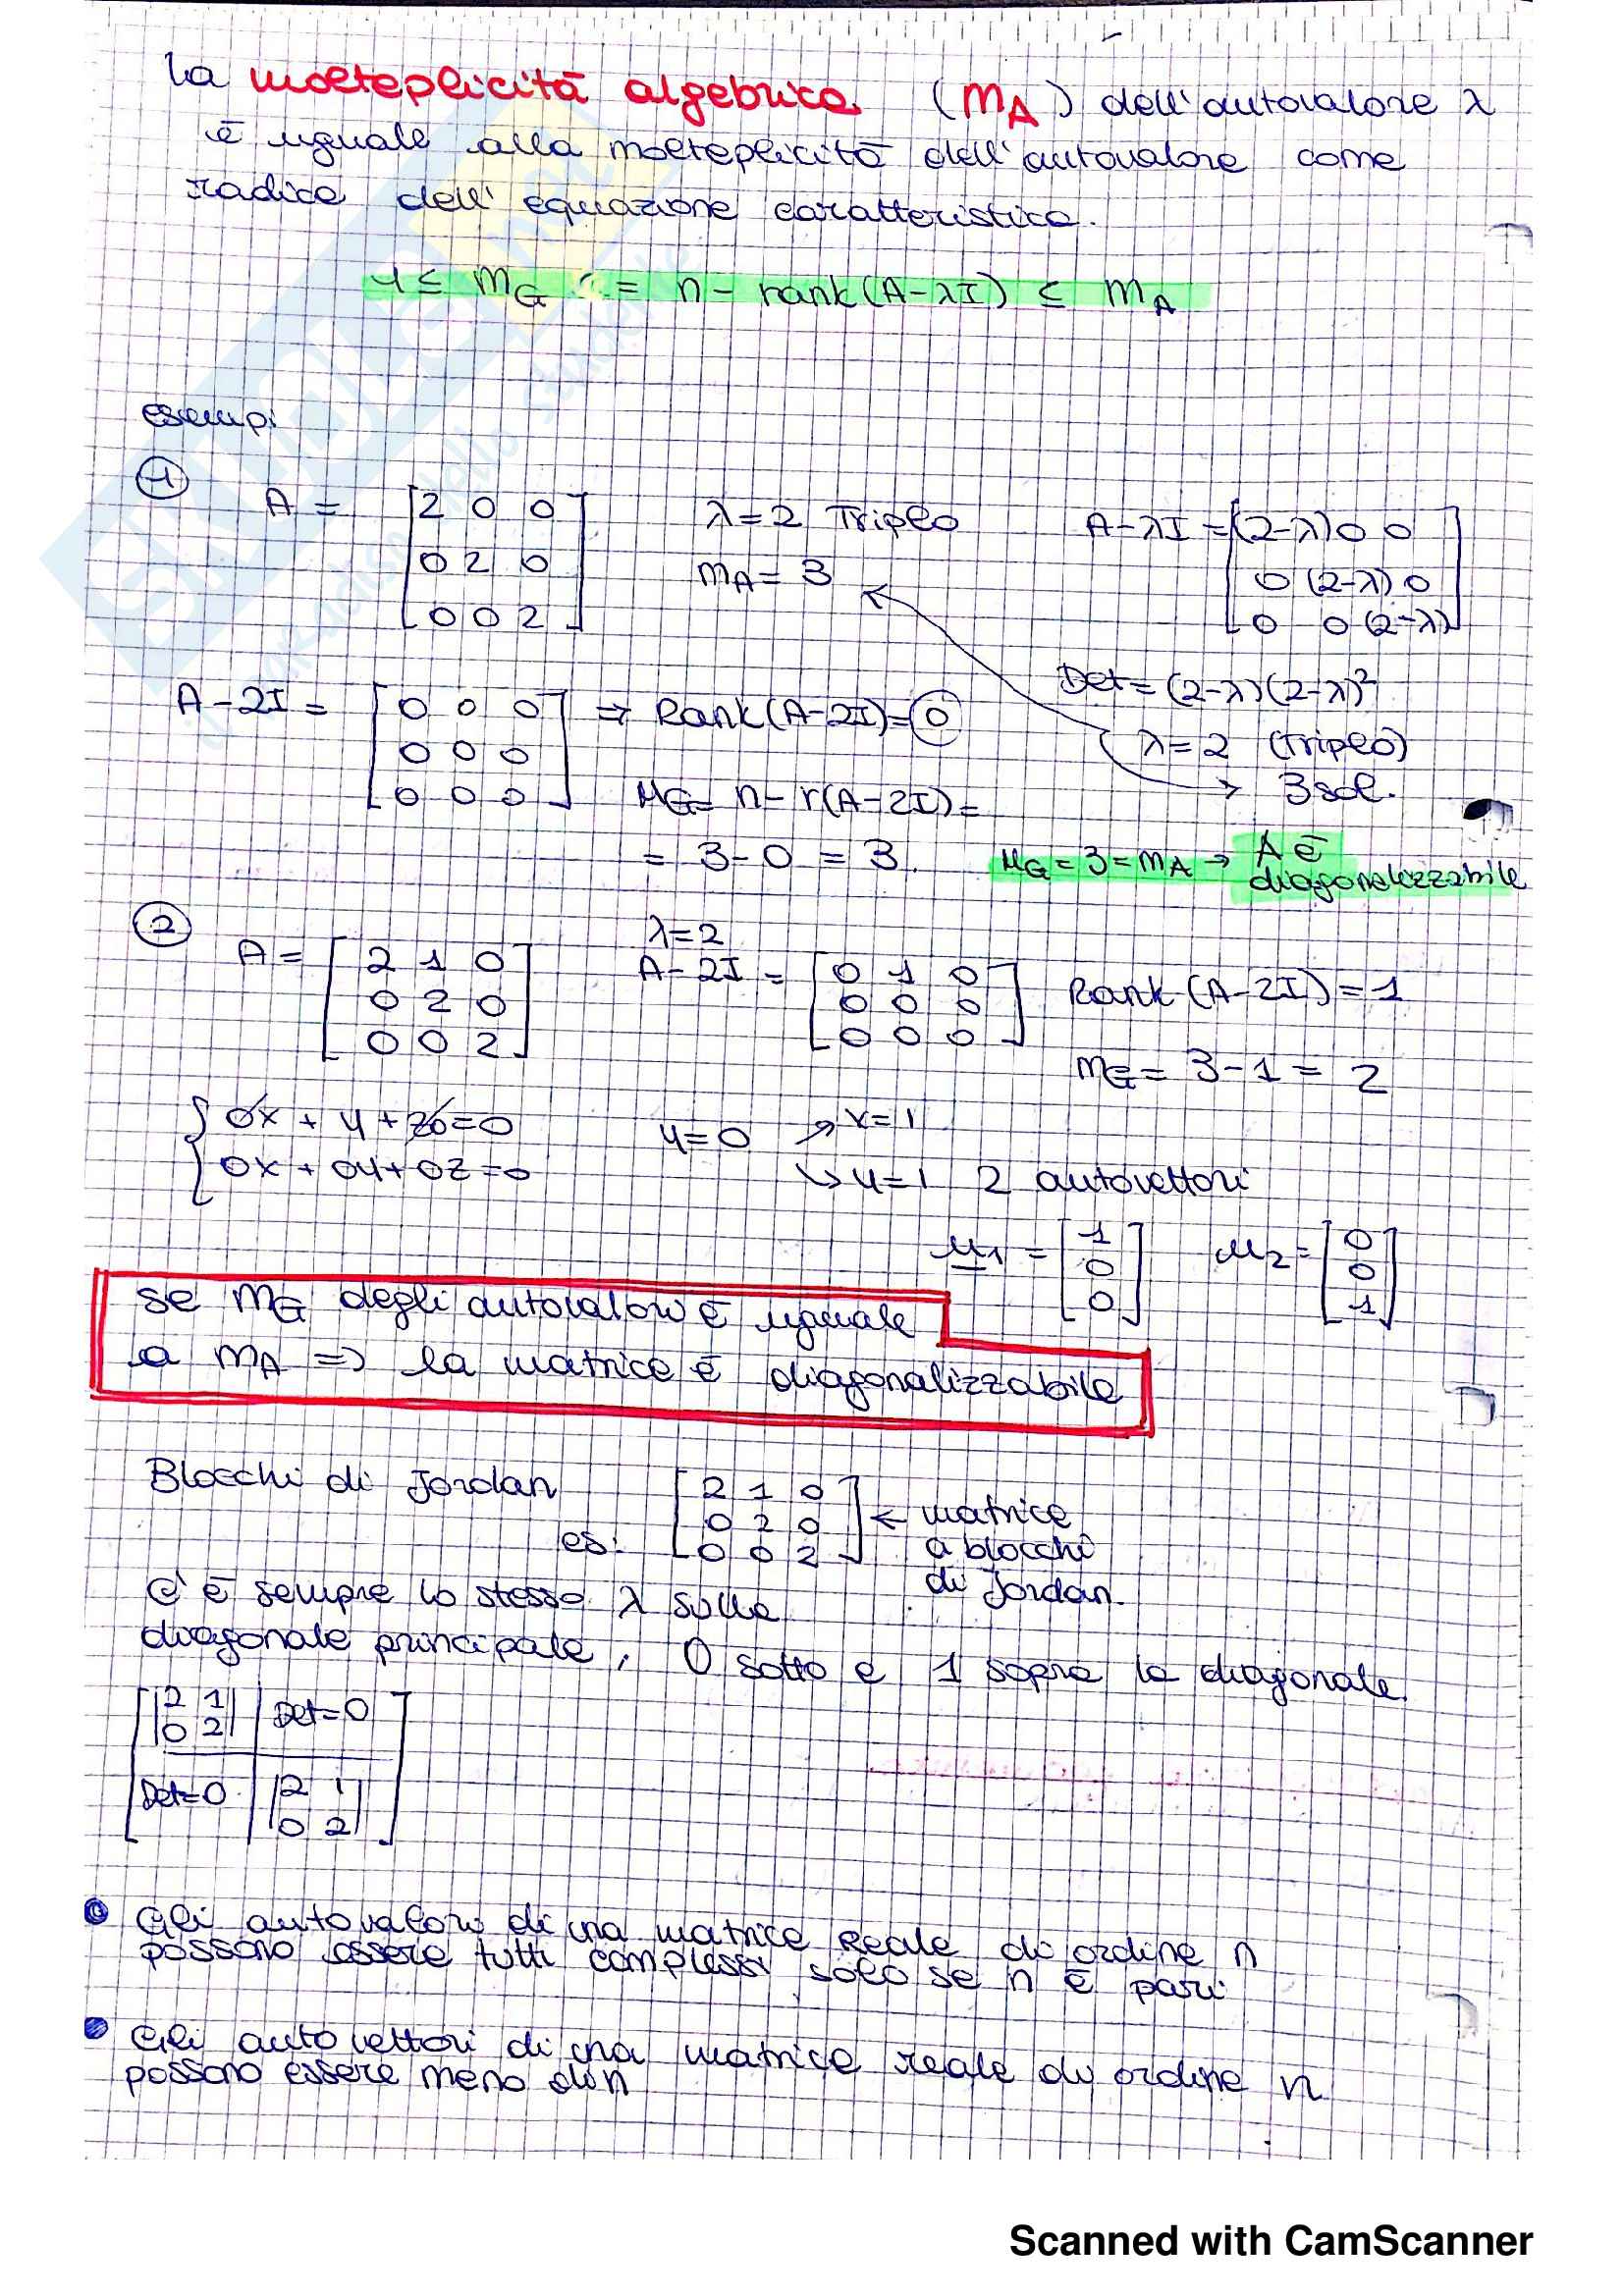 La molteplicità algebrica (mA) dell'autovalore λ
è uguale alla molteplicità dell'autovalore come
radice dell'equazione caratteristica.
1 ≤ mG := n - rank(A-λI) ≤ mA
esempi
① A = [2 0 0 λ=2 Triplo A-λI = [(2-λ) 0 0
0 2 0 mA = 3 0 (2-λ) 0
0 0 2] 0 0 (2-λ)]
Det = (2-λ)(2-λ)²
A-2I = [0 0 0 ⇒ Rank(A-2I) = 0 λ=2 (triplo)
0 0 0
0 0 0] MG = n - r(A-2I) = → 3 sol.
= 3-0 = 3. MG = 3 = mA → A è
diagonalizzabile
② λ=2
A = [2 1 0 A-2I = [0 1 0 Rank(A-2I) = 1
0 2 0 0 0 0
0 0 2] 0 0 0]
mG = 3-1 = 2
{0x + y + z0 = 0 y=0 ↗ x=1
0x + 0y + 0z = 0 ↘ y=1 2 autovettori
u1 = [1 0 0] u2 = [0 0 1]
se mG degli autovalori è uguale
a mA ⇒ la matrice è diagonalizzabile
Blocchi di Jordan
es: [2 1 0
0 2 0
0 0 2] ← matrice
a blocchi
di Jordan.
C'è sempre lo stesso λ sulla
diagonale principale, 0 sotto e 1 sopra la diagonale.
[|2 1| Det=0
|0 2|
Det=0 |2 1|
|0 2|]
Gli autovalori di una matrice Reale di ordine n
possono essere tutti complessi solo se n è pari
Gli autovettori di una matrice reale di ordine n
possono essere meno di n
Scanned with CamScanner